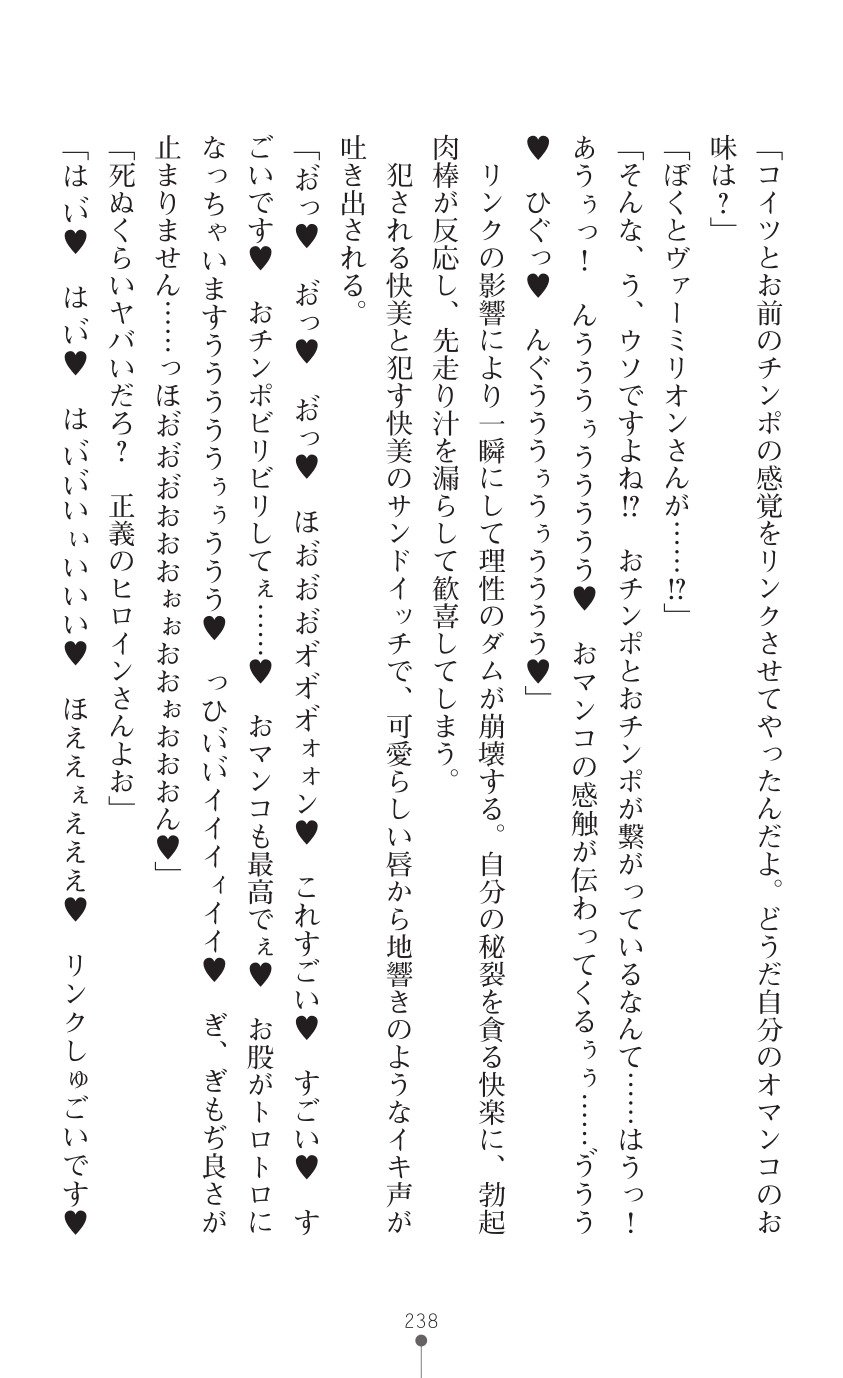 「コイツとお前のチンポの感覚をリンクさせてやったんだよ。どうだ自分のオマンコのお
味は？」
「ぼくとヴァーミリオンさんが……⁉」
「そんな、う、ウソですよね⁉　おチンポとおチンポが繋がっているなんて……はうっ！
あうぅっ！　んうううぅううううう♥　おマンコの感触が伝わってくるぅぅ……ゔうう
♥　ひぐっ♥　んぐうううぅうぅうううう♥」
　リンクの影響により一瞬にして理性のダムが崩壊する。自分の秘裂を貪る快楽に、勃起
肉棒が反応し、先走り汁を漏らして歓喜してしまう。
　犯される快美と犯す快美のサンドイッチで、可愛らしい唇から地響きのようなイキ声が
吐き出される。
「お゙っ♥　お゙っ♥　お゙っ♥　ほお゙お゙お゙オ゙オ゙オ゙ォォン♥　これすごい♥　すごい♥　す
ごいです♥　おチンポビリビリしてぇ……♥　おマンコも最高でぇ♥　お股がトロトロに
なっちゃいますうううううぅぅううう♥　っひい゙い゙イイイィイイ♥　ぎ、ぎもぢ良さが
止まりません……っほお゙お゙お゙おおおぉぉおおぉおおおん♥」
「死ぬくらいヤバいだろ？　正義のヒロインさんよお」
「はい゙♥　はい゙♥　はい゙い゙いぃいいいい♥　ほええぇえええ♥　リンクしゅごいです♥
238